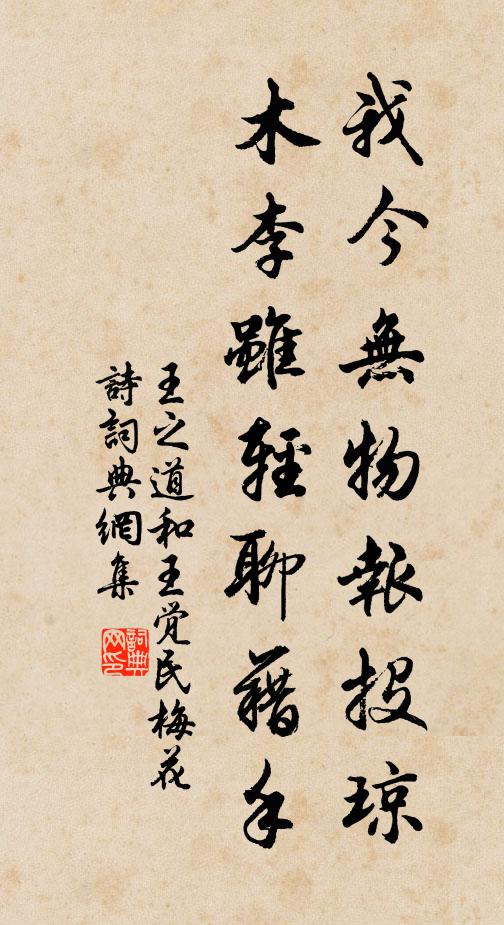 我今無物報投瓊
木李雖輕聊藉手
王之道和王觉民梅花
詩詞典網集
詞典网印